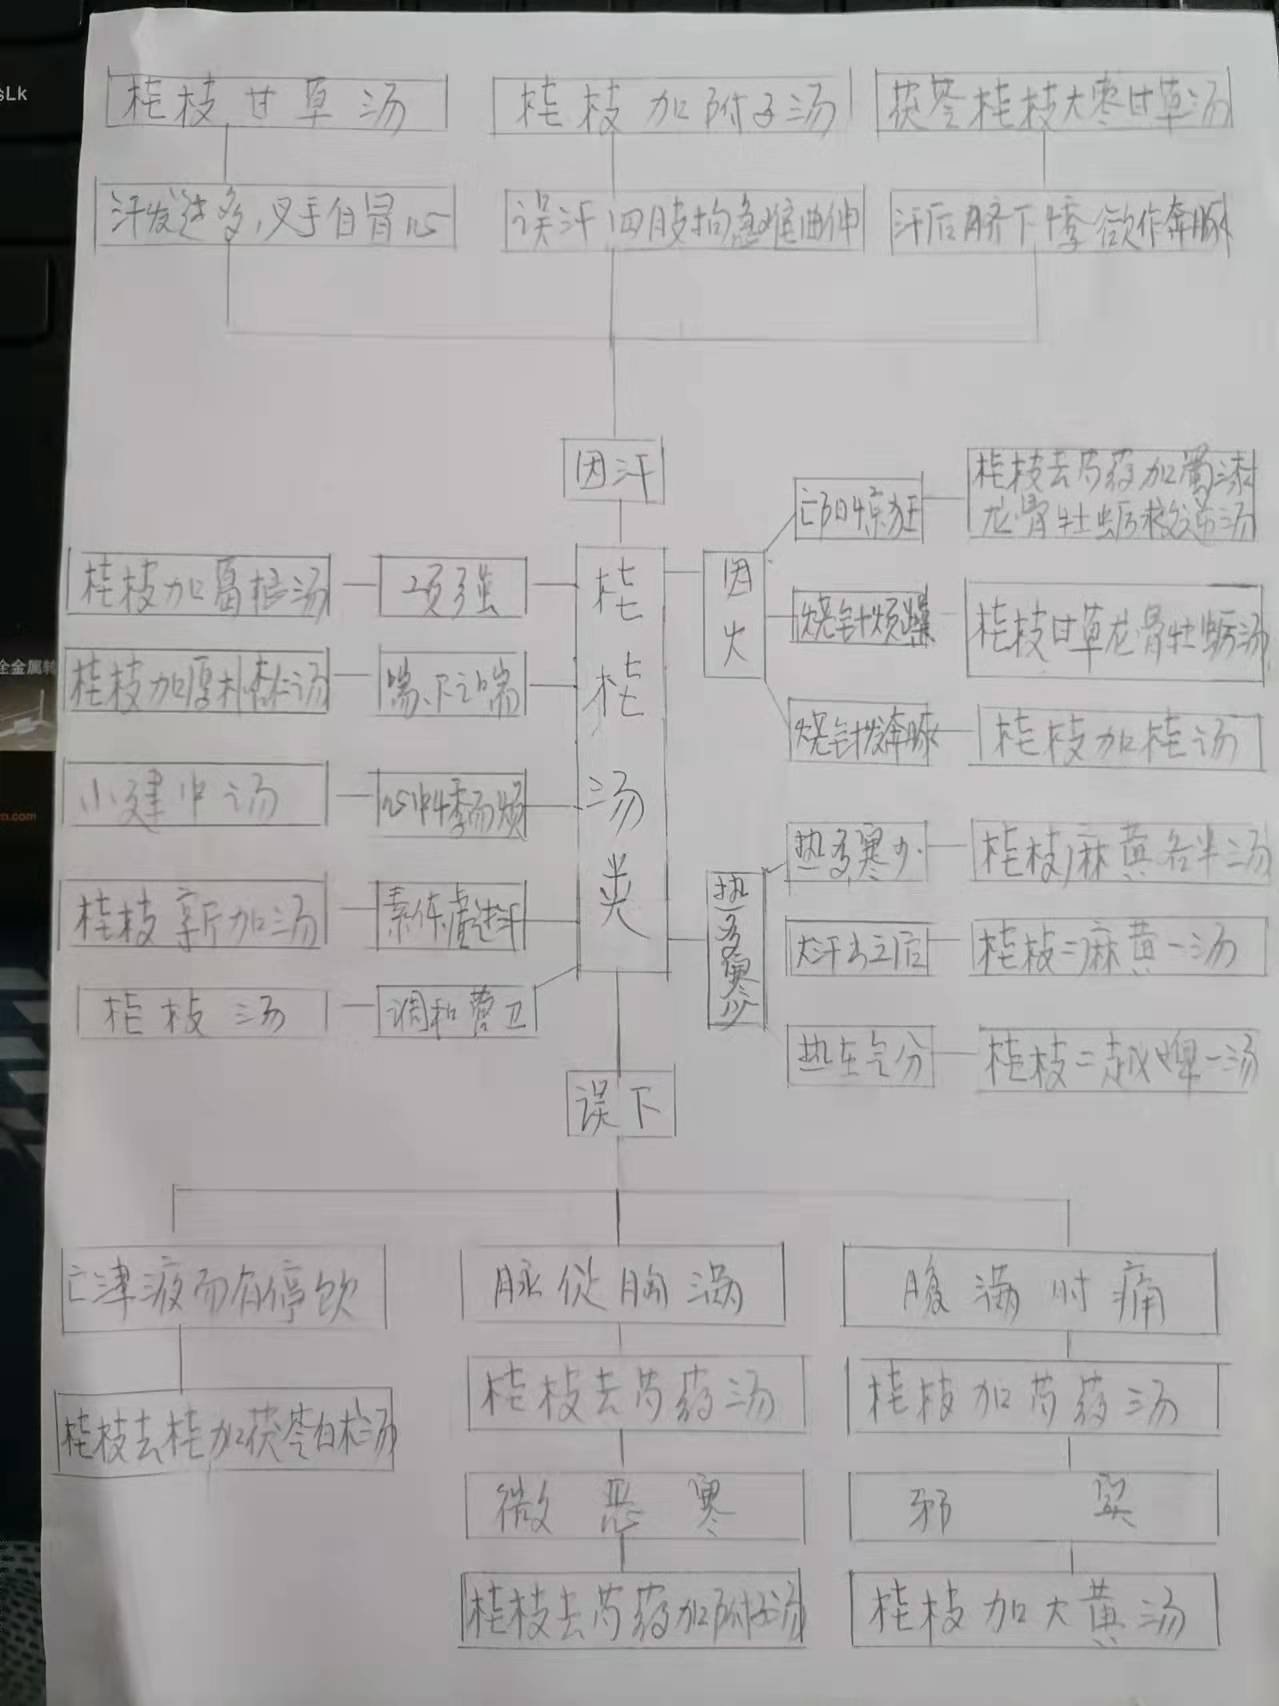 sLk
桂枝甘草汤
桂枝加附子汤
茯苓桂枝大枣甘草汤
汗发过多,叉手自冒心
误汗四肢拘急难曲伸
汗后脐下悸欲作奔豚
因汗
桂枝加葛根汤
项强
桂枝加厚朴杏仁汤
喘、下之喘
小建中汤
心中悸而烦
桂枝新加汤
素体虚过汗
桂枝汤
调和营卫
桂枝汤类
因火
亡阳惊狂
桂枝去芍药加蜀漆
龙骨牡蛎救逆汤
烧针烦躁
桂枝甘草龙骨牡蛎汤
烧针发奔豚
桂枝加桂汤
热多寒少
热多寒少
桂枝麻黄各半汤
大汗出之后
桂枝二麻黄一汤
热在气分
桂枝二越婢一汤
误下
亡津液而有停饮
脉促胸满
腹满时痛
桂枝去桂加茯苓白术汤
桂枝去芍药汤
桂枝加芍药汤
微恶寒
邪实
桂枝去芍药加附子汤
桂枝加大黄汤
全金属
n.com